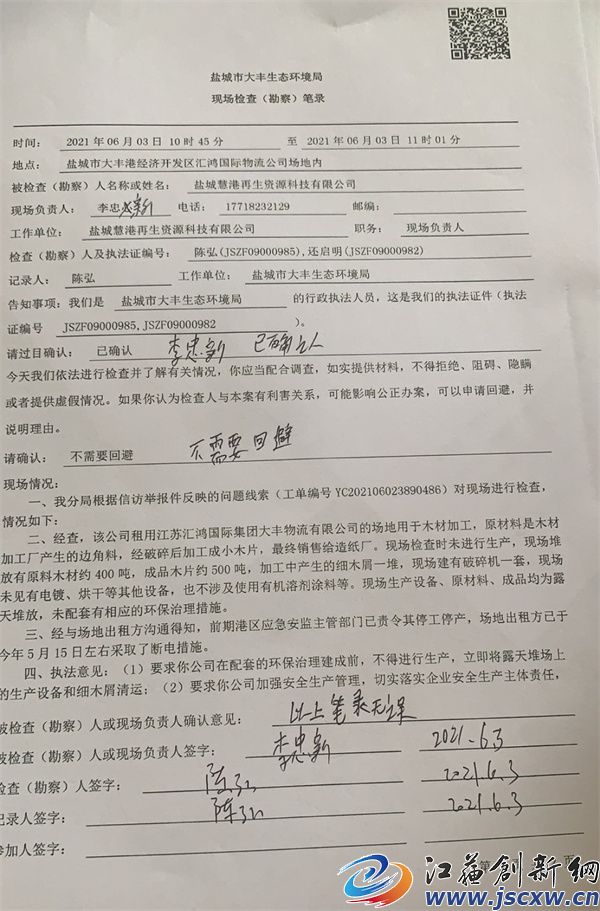 盐城市大丰生态环境局
现场检查（勘察）笔录
时间： 2021 年 06 月 03 日 10 时 45 分 至 2021 年 06 月 03 日 11 时 01 分
地点： 盐城市大丰港经济开发区汇鸿国际物流公司场地内
被检查（勘察）人名称或姓名： 盐城慧港再生资源科技有限公司
现场负责人： 李忠新 电话： 17718232129 邮编：
工作单位： 盐城慧港再生资源科技有限公司 职务： 现场负责人
检查（勘察）人及执法证编号： 陈弘(JSZF09000985),还启明(JSZF09000982)
记录人： 陈弘 工作单位： 盐城市大丰生态环境局
告知事项：我们是 盐城市大丰生态环境局 的行政执法人员，这是我们的执法证件（执法
证编号 JSZF09000985,JSZF09000982 ）。
请过目确认： 已确认 李忠新 已确认
今天我们依法进行检查并了解有关情况，你应当配合调查，如实提供材料，不得拒绝、阻碍、隐瞒
或者提供虚假情况。如果你认为检查人与本案有利害关系，可能影响公正办案，可以申请回避，并
说明理由。
请确认： 不需要回避 不需要回避
现场情况：
一、我分局根据信访举报件反映的问题线索（工单编号 YC202106023890486）对现场进行检查，
情况如下：
二、经查，该公司租用江苏汇鸿国际集团大丰物流有限公司的场地用于木材加工，原材料是木材
加工厂产生的边角料，经破碎后加工成小木片，最终销售给造纸厂。现场检查时未进行生产，现场堆
放有原料木材约 400 吨，成品木片约 500 吨，加工中产生的细木屑一堆，现场建有破碎机一套，现场
未见有电镀、烘干等其他设备，也不涉及使用有机溶剂涂料等。现场生产设备、原材料、成品均为露
天堆放，未配套有相应的环保治理措施。
三、经与场地出租方沟通得知，前期港区应急安监主管部门已责令其停工停产，场地出租方已于
今年 5 月 15 日左右采取了断电措施。
四、执法意见：（1）要求你公司在配套的环保治理建成前，不得进行生产，立即将露天堆场上
的生产设备和细木屑清运；（2）要求你公司加强安全生产管理，切实落实企业安全生产主体责任，
被检查（勘察）人或现场负责人确认意见： 以上笔录无误
被检查（勘察）人或现场负责人签字： 李忠新 2021.6.3
检查（勘察）人签字： 陈弘 2021.6.3
记录人签字： 陈弘 2021.6.3
参加人签字：
第 页
江苏创新网
www.jscxw.cn